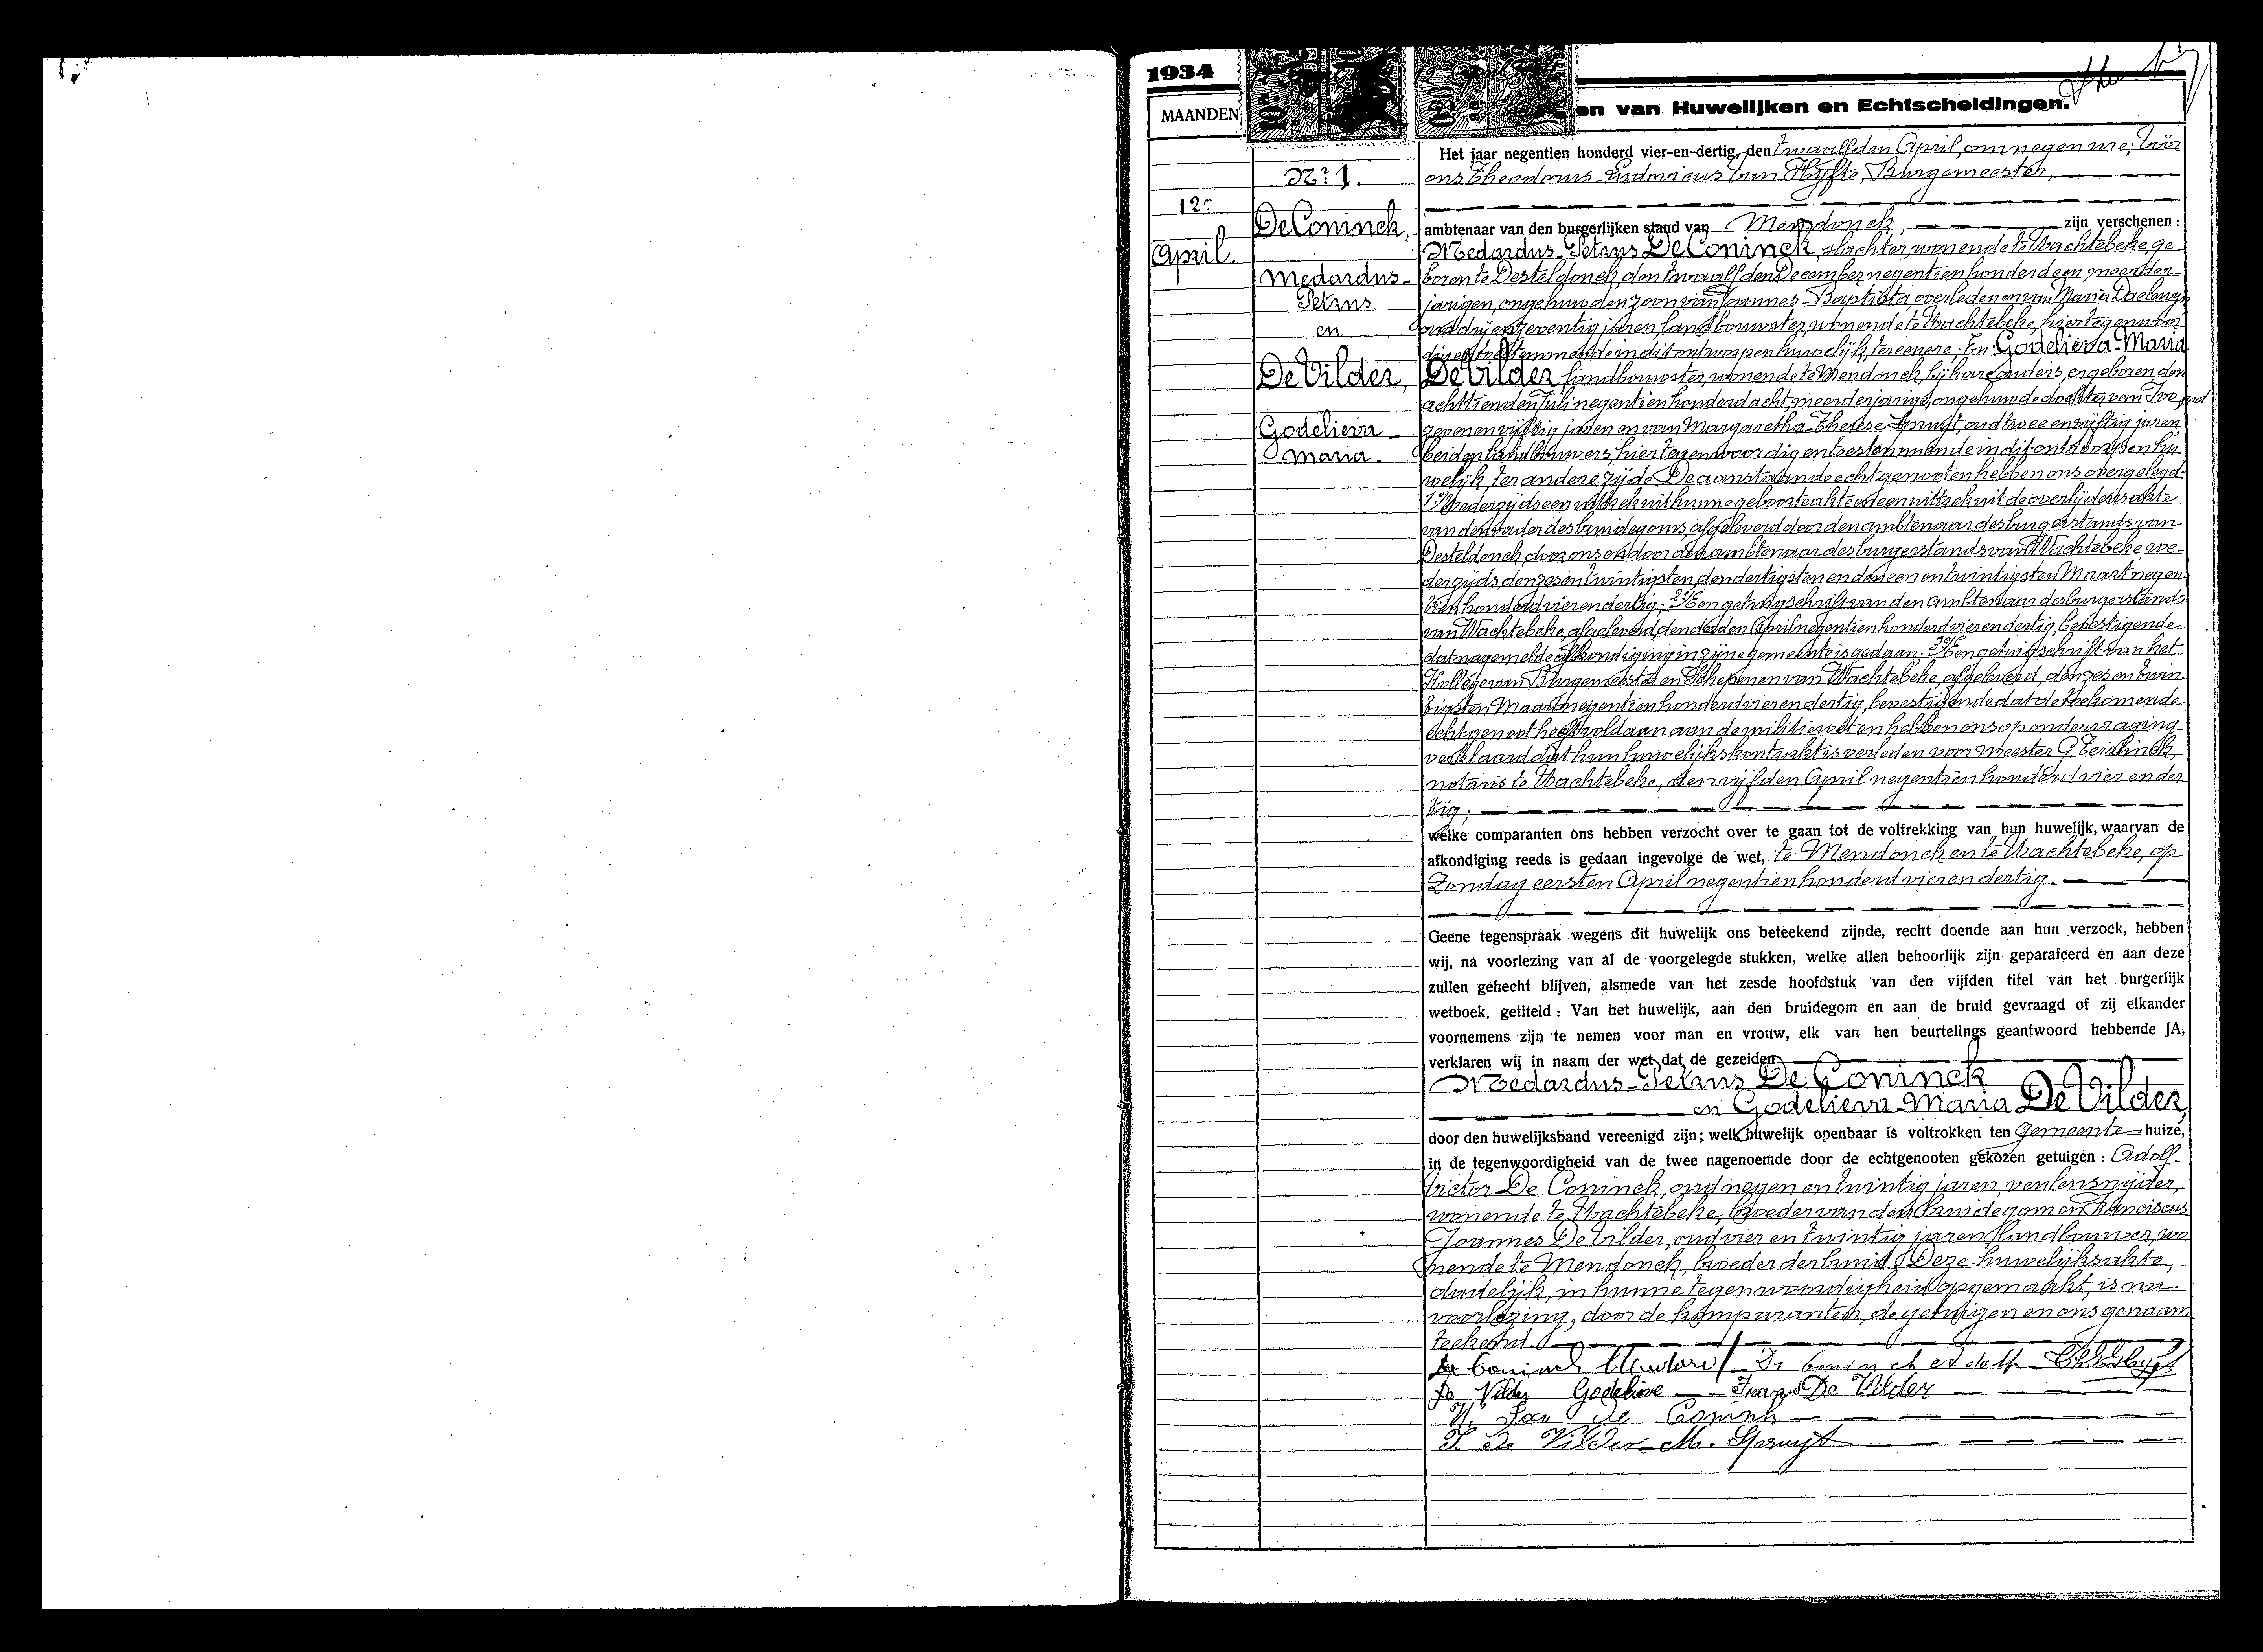 1934
MAANDEN
en van Huwelijken en Echtscheidingen.
Nr 1.
12n
April.
De Coninck,
Medardus-
Petrus
en
De Vilder,
Godelieva
Maria.
Het jaar negentien honderd vier-en-dertig, den twaalfden April, om negen ure, vóór
ons Theodorus-Ludovicus Van Hyfte, Burgemeester,
ambtenaar van den burgerlijken stand van Mendonck, zijn verschenen :
Medardus-Petrus De Coninck, slachter, wonende te Wachtebeke, ge
boren te Desteldonck, den twaalfden December negentien honderd een, meerder-
jarigen, ongehuwden zoon van Joannes-Baptista, overleden en van Maria
oud drij en zeventig jaren, landbouwster, wonende te Wachtebeke, hier tegenwoor-
dig en toestemmende in dit ontworpen huwelijk, ter eenere; En Godelieva-Maria
De Vilder, landbouwster, wonende te Mendonck, bij hare ouders, er geboren den
achttienden Juli negentien honderd acht, meerderjarige, ongehuwde dochter van Ivo, oud
zeven en vijftig jaren en van Margaretha-Therese Spruyt, oud twee en vijftig jaren,
beiden landbouwers, hier tegenwoordig en toestemmende in dit ontworpen hu-
welijk, ter andere zijde. De aanstaande echtgenooten hebben ons overgelegd:
1° Wederzijds een uittrek uit hunne geboorteakte en een uittrek uit de overlijdensakte
van den vader des bruidegoms, afgeleverd door den ambtenaar des burgerstands van
Desteldonck, door ons en door den ambtenaar des burgerstands van Wachtebeke, we-
derzijds, den zes en twintigsten, den dertigsten en den een en twintigsten Maart negen-
tien honderd vier en dertig; 2° Een getuigschrift van den ambtenaar des burgerstands
van Wachtebeke, afgeleverd, den derden April negentien honderd vier en dertig, bevestigende
dat nagemelde afkondiging in zijne gemeente is gedaan; 3° Een getuigschrift van het
Kollege van Burgemeester en Schepenen van Wachtebeke, afgeleverd, den zes en twin-
tigsten Maart negentien honderd vier en dertig, bevestigende dat de toekomende
echtgenoot heeft voldaan aan de militiewet en hebben ons op ondervraging
verklaard dat hun huwelijkskontrakt is verleden voor meester G. Teirlinck,
notaris te Wachtebeke, den vijfden April negentien honderd vier en der
tig;
welke comparanten ons hebben verzocht over te gaan tot de voltrekking van hun huwelijk, waarvan de
afkondiging reeds is gedaan ingevolge de wet, te Mendonck en te Wachtebeke, op
Zondag eersten April negentien honderd vier en dertig.
Geene tegenspraak wegens dit huwelijk ons beteekend zijnde, recht doende aan hun verzoek, hebben
wij, na voorlezing van al de voorgelegde stukken, welke allen behoorlijk zijn geparafeerd en aan deze
zullen gehecht blijven, alsmede van het zesde hoofdstuk van den vijfden titel van het burgerlijk
wetboek, getiteld : Van het huwelijk, aan den bruidegom en aan de bruid gevraagd of zij elkander
voornemens zijn te nemen voor man en vrouw, elk van hen beurtelings geantwoord hebbende JA,
verklaren wij in naam der wet dat de gezeiden
Medardus-Petrus De Coninck
en Godelieva-Maria De Vilder,
door den huwelijksband vereenigd zijn; welk huwelijk openbaar is voltrokken ten Gemeente huize,
in de tegenwoordigheid van de twee nagenoemde door de echtgenooten gekozen getuigen : Adolf-
Victor De Coninck, oud negen en twintig jaren, wonende te Wachtebeke, broeder van den bruidegom en Franciscus
Joannes De Vilder, oud vier en twintig jaren, landbouwer, wo
nende te Mendonck, broeder der bruid. Deze huwelijksakte,
dadelijk, in hunne tegenwoordigheid opgemaakt, is na
voorlezing, door de komparanten, de getuigen en ons genaam
teekend.
De Coninck Medard De Coninck Adolf
De Vilder Godelieve Frans De Vilder
De Coninck
I. De Vilder M. Spruyt